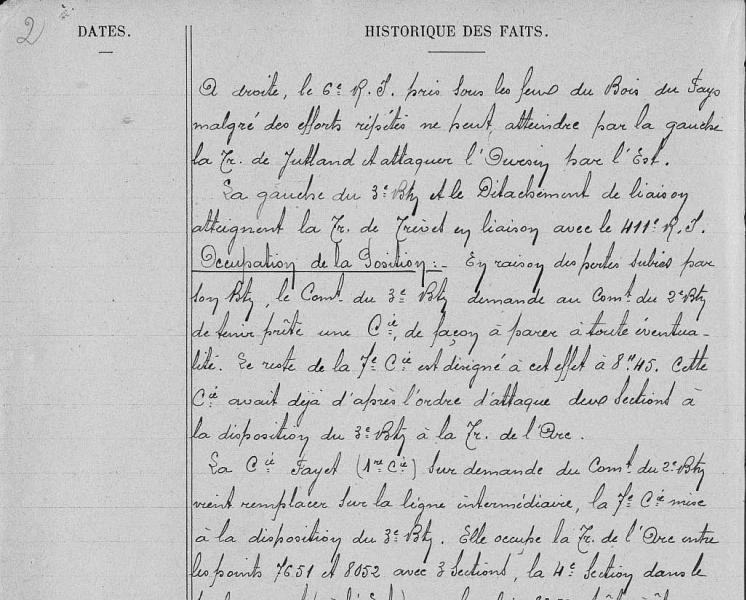 2
DATES.
HISTORIQUE DES FAITS.
A droite, le 6e R.I. pris sous les feux du Bois du Fays
malgré des efforts répétés ne peut, atteindre par la gauche
la Tr. de Jutland et attaquer l'Ouvrage par l'Est.
La gauche du 3e Btn et le Détachement de liaison
atteignent la Tr. de Trèves en liaison avec le 411e R.I.
Occupation de la Position :- En raison des pertes subies par
son Btn, le Comt du 3e Btn demande au Comt du 2e Btn
de tenir prête une Cie, de façon à parer à toute éventua-
lité. Le reste de la 7e Cie est désigné à cet effet à 8h45. Cette
Cie avait déjà d'après l'ordre d'attaque deux Sections à
la disposition du 3e Btn à la Tr. de l'Orc.
La Cie Fayet (1re Cie) sur demande du Comt du 2e Btn
vient remplacer sur la ligne intermédiaire, la 7e Cie mise
à la disposition du 3e Btn. Elle occupe la Tr. de l'Orc entre
les points 7651 et 8052 avec 3 Sections, la 4e Section dans le